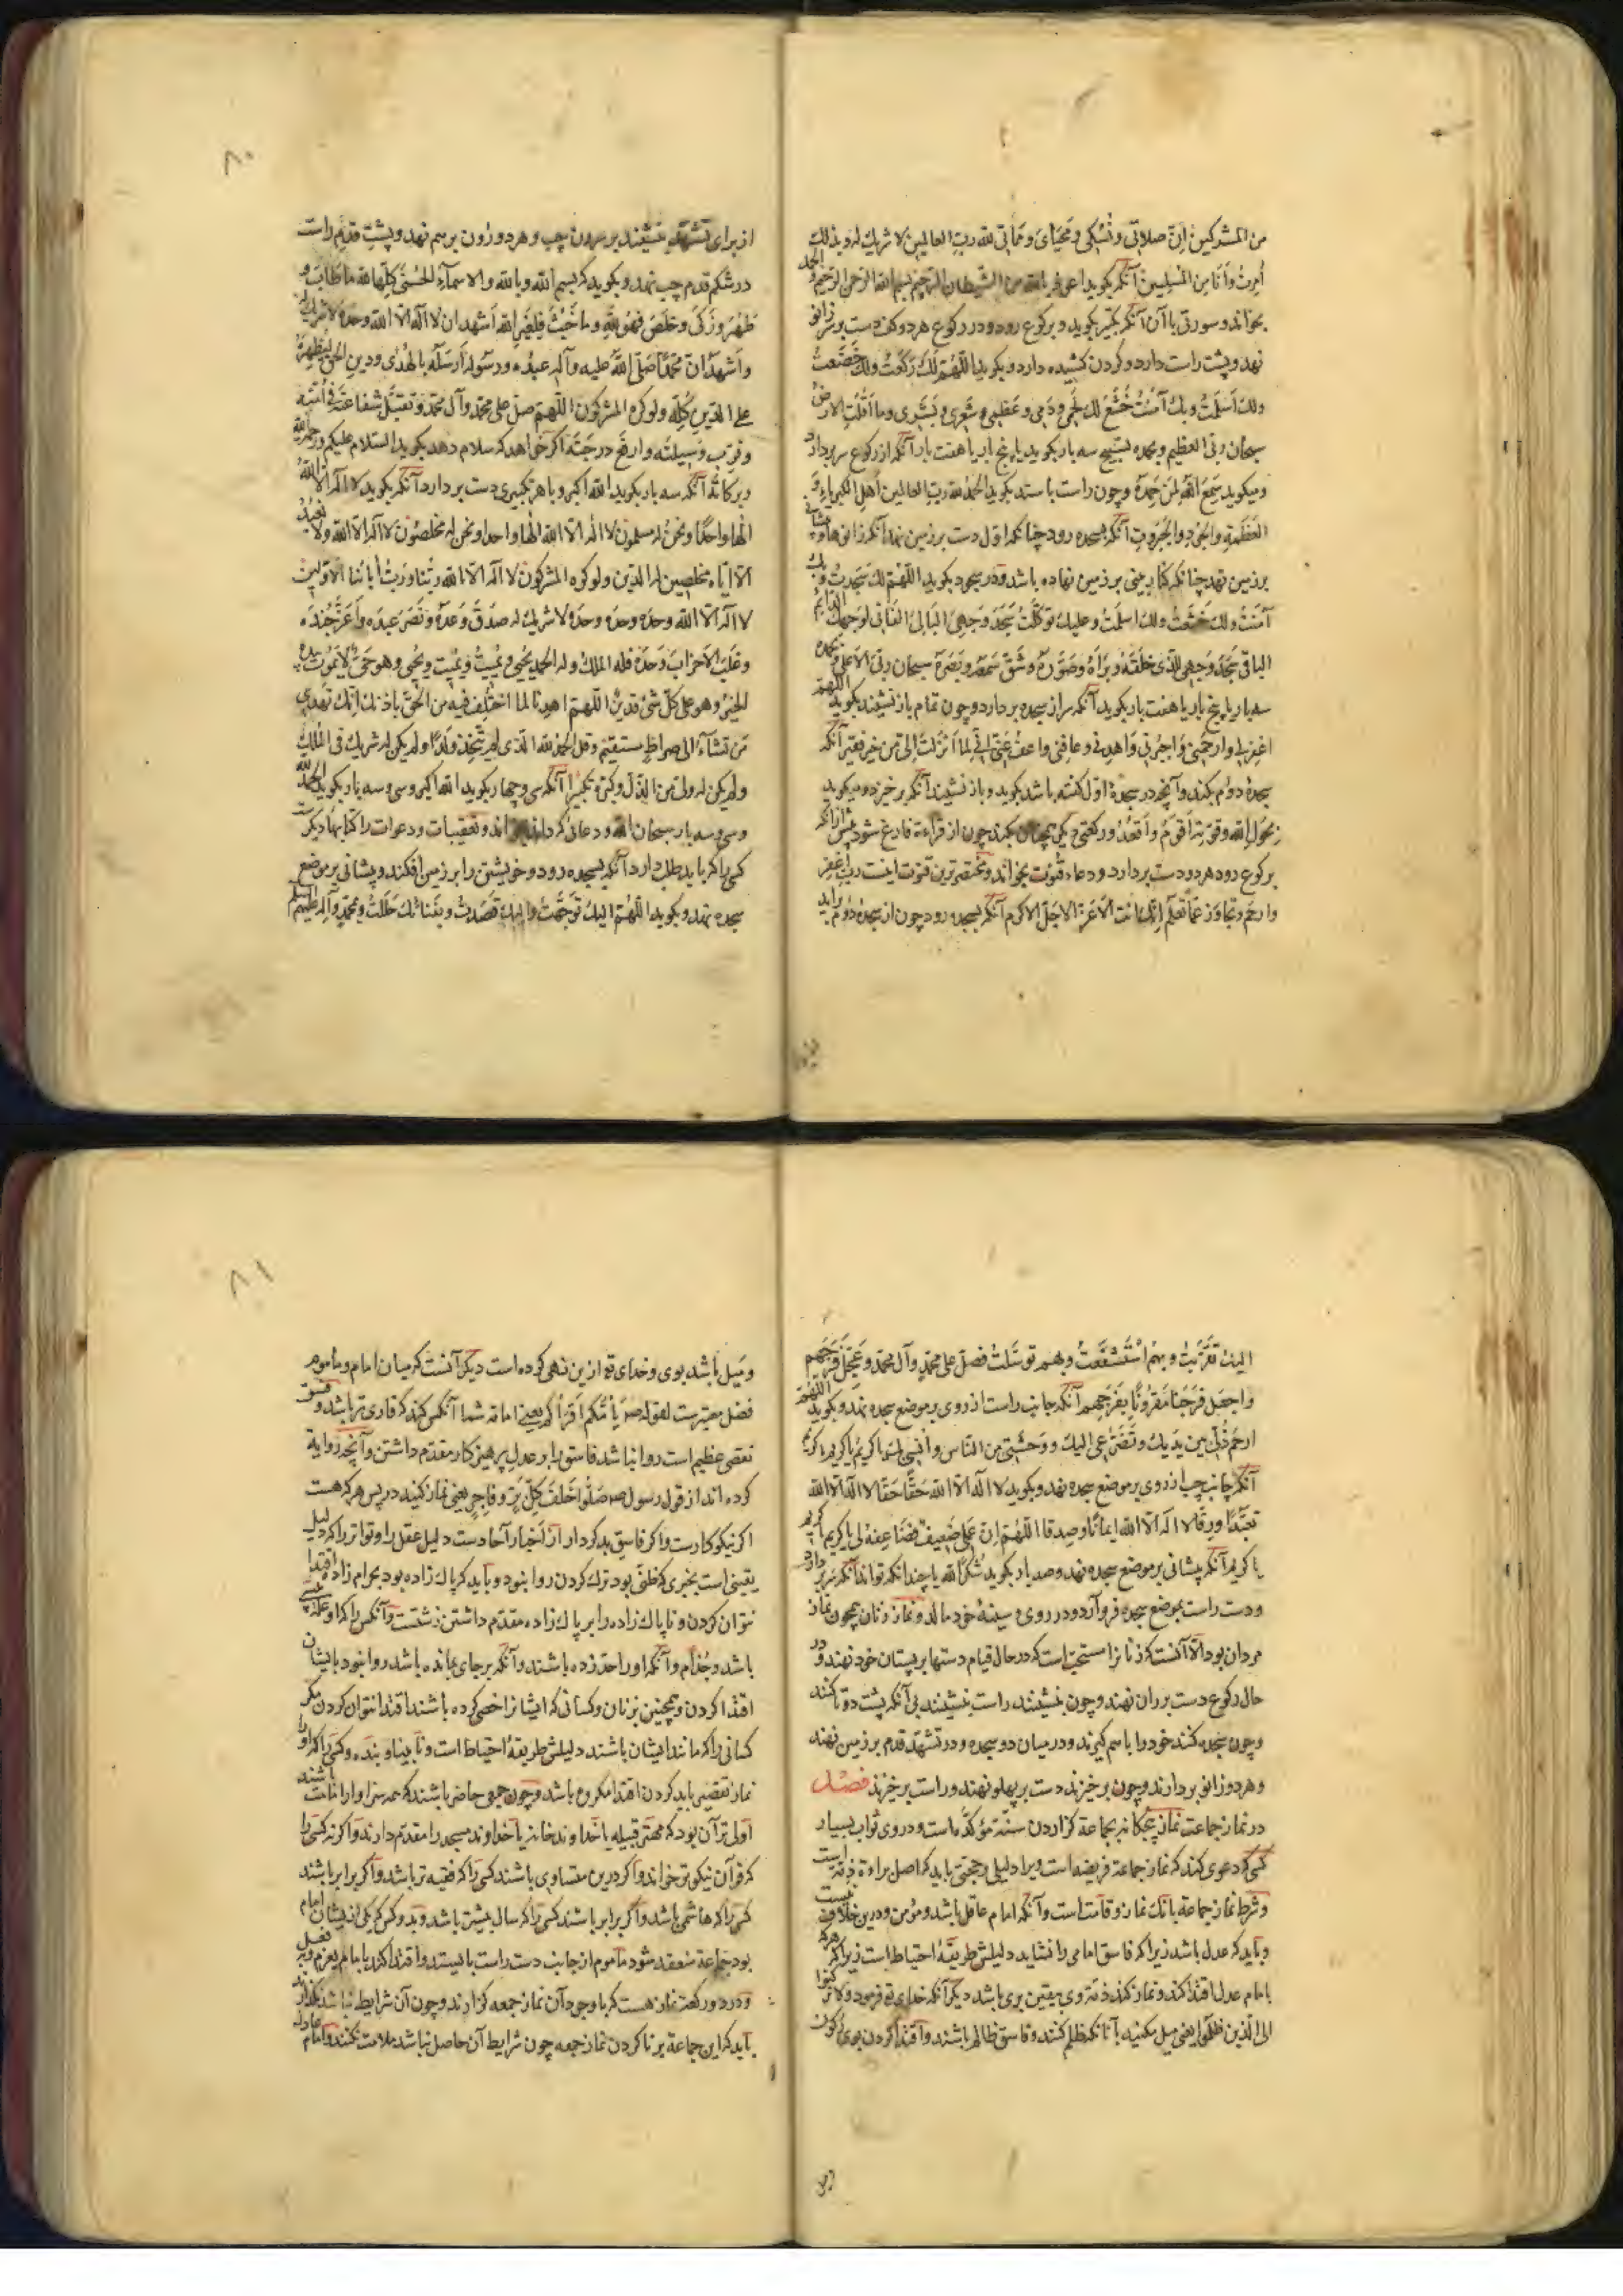 من المشرکین اِنّ صلاتی و نُسُکی و مَحیایَ و مَماتی لله ربّ العالمین لا شریك له وبذلك
اُمِرتُ وَاَنَا مِنَ المُسلِمینَ آنگه بگوید اعوذ بالله من الشیطان الرجیم بسم الله الرحمن الرحیم و الحمد
بخواند وسورتی با آن آنگه تکبیر بگوید و برکوع رود ودر رکوع هر دو کف دست بر زانو
نهد وپشت راست دارد وگردن کشیده دارد وبگوید اللّهُمّ لَكَ رَکَعتُ ولك خَضَعتُ
ولك اَسلَمتُ وبك آمَنتُ خَشَعَ لك لَحمی ودَمی وعَظمی وشَعری وبَشَری وما اَقَلَّتِ الارض
سبحان ربی العظیم وبحمده تسبیح سه بار بگوید یا پنج بار یا هفت بار آنگه از رکوع سر بردارد
ومیگوید سَمِعَ اللهُ لِمَن حَمِدَه وچون راست باستد بگوید الحمد لله ربّ العالمین اَهلِ الکبریاءِ و
العَظَمَةِ والجُودِ والجَبَرُوتِ آنگه بسجده رود چنانکه اوّل دست بر زمین نهد آنگه زانوها و پیشانی
بر زمین نهد چنانکه کنار بینی بر زمین نهاده باشد ودر سجود بگوید اللّهُمّ لك سَجَدتُ وبك
آمَنتُ ولك خَشَعتُ ولك اسلَمتُ وعلیك توکّلتُ سَجَدَ وَجهِیَ البالی الفانی لِوَجهِك الدائم
الباقی سَجَدَ وَجهی للّذی خَلَقَهُ وبَرَاَهُ وصَوَّرَهُ وشَقَّ سَمعَهُ وبَصَرَهُ سبحان ربی الاعلی و بحمده
سه بار یا پنج بار یا هفت بار بگوید آنگه سر از سجده بردارد وچون تمام باز نشیند بگوید اللهمّ
اغفِر لی وارحَمنی وَاجبُرنی وَاهدِنی وعافِنی واعفُ عَنّی اِنّی لِما اَنزَلتَ اِلَیّ مِن خَیرٍ فَقیر آنگه
سجدهٔ دوم بکند وآنچه در سجدهٔ اوّل گفته باشد بگوید وباز نشیند آنگه برخیزد ومیگوید
بِحَولِ الله وقوّتِهِ اَقُومُ وَاَقعُدُ ورکعتی دیگر همچنان بکند چون از قراءة فارغ شود پیش ازآنکه
برکوع رود هر دو دست بردارد ودعاء قُنوت بخواند ومختصرترین قنوت اینست ربّ اغفِر
وارحَم وتجاوَز عَمّا تعلَم اِنّك انت الاَعَزُّ الاجَلّ الاکرم آنگه بسجده رود چون از سجدهٔ دوم برآید
۸۰
از برای تَشَهُّد بنشیند بر سرون چپ وهر دو ران بر هم نهد وپشتِ قدم راست
در شکم قدم چپ نهد وبگوید که بسم الله وبالله والاسماءِ الحُسنَی کُلِّها لله ما طابَ و
طَهُرَ وزَکَی وخَلَصَ فَهُوَ للهِ وما خَبُثَ فَلِغَیرِ اللهِ اَشهد ان لا اله الا الله وحده لا شریك له
واَشهَدُ انّ محمّداً صَلّی اللهُ علیه وآله عبدُه ورسولُه اَرسَلَهُ بالهُدی ودینِ الحقّ لِیُظهِرَهُ
علی الدّینِ کُلِّه ولو کره المشرکون اللّهمّ صلّ علی محمّد وآل محمّد وتقبّل شفاعتَه فی اُمّتِه
وقرِّب وَسیلتَه وارفَع درجتَه اگر خواهد که سلام دهد بگوید السلام علیکم ورحمة الله
وبرکاته آنگه سه بار بگوید الله اکبر وبا هر تکبیری دست بردارد آنگه بگوید لا اله الا الله
الهاً واحداً ونحن له مسلمون لا اله الا الله الهاً واحداً ونحن له مخلصون لا اله الا الله ولا نعبدُ
الا ایّاه مخلصین له الدّین ولو کره المشرکون لا اله الا الله ربّنا وربّ آبائنا الاوّلین
لا اله الا الله وحدَه وحدَه وحدَه لا شریك له صَدَقَ وَعدَهُ ونَصَرَ عَبدَه وَاَعَزَّ جُندَه
وغَلَبَ الاَحزابَ وَحدَهُ فله الملكُ وله الحمد یُحیی ویُمیتُ ویُمیت ویُحیی وهو حیٌّ لا یموت بیده
الخیر وهو علی کلّ شئ قدیر اللّهمّ اهدِنا لما اختُلِف فیه من الحقّ باذنك اِنّك تهدی
مَن تشاءُ الی صراطٍ مستقیم وقل الحمد لله الذی لم یتّخِذ ولداً ولم یکن له شریك فی الملك
ولم یکن له ولیّ من الذلّ وکبّره تکبیراً آنگه سی وچهار بگوید الله اکبر وسی وسه بار بگوید الحمد لله
وسی وسه بار سبحان الله ودعائی که دانند وتعقیبات ودعوات را کتابها دیگرست
کسی را که باید طلب دارد آنگه بسجده رود وخویشتن را بر زمین افکند وپیشانی بر موضع
سجده نهد وبگوید اللّهمّ الیك توجّهتُ والیك قصدتُ وبفنائك حَلَلتُ وبمحمّدٍ وآله علیهم السلم
الیك تَقَرَّبتُ وبهم استَشفَعتُ وبهم توسّلتُ فصلّ علی محمّد وآل محمّد وعَجِّل فَرَجَهم
واجعَل فَرَجَنا مَقرُوناً بِفَرَجِهِم آنگه جانب راست از روی بر موضع سجده نهد وبگوید اللهم
ارحَم ذُلّی بین یدیك وتَضَرُّعی الیك ووَحشَتی من النّاس واُنسی بك یا کریمُ یا کریم یا کریم
آنگه جانب چپ از روی بر موضع سجده نهد وبگوید لا اله الا الله حَقّاً حَقّا لا اله الا الله
تَعَبُّداً ورِقّا لا اله الا الله ایماناً وصدقا اللّهمّ اِنّ عَمَلی ضعیفٌ فضاعِفهُ لی یا کریم یا کریم
یا کریم آنگه پیشانی بر موضع سجده نهد وصد بار بگوید شکراً لله یا چندانکه تواند آنگه سر بردارد
ودست راست بموضع سجده فروآرد ودر روی و سینهٔ خود مالد ونماز زنان همچون نماز
مردان بود الا آنست که زنانرا مستحبّ است که در حال قیام دستها بر پستان خود نهند ودر
حال رکوع دست بر ران نهند وچون بنشینند راست بنشینند بی آنکه پشت دوتا کنند
وچون سجده کنند خود را باهم گیرند ودرمیان دو سجده ودر تشهّد قدم بر زمین نهند
وهر دو زانو بردارند وچون برخیزند دست بر پهلو نهند وراست برخیزند فصل
در نماز جماعت نماز پنجگانه بجماعة گزاردن سنّة مؤکّده است ودر وی ثواب بسیار است
کسی که دعوی کند که نماز جماعة فریضه است ویرا دلیلی وحجّتی باید که اصل براءة ذمّه است
وشرط نماز جماعة بانگ نماز وقامت است وآنکه امام عاقل باشد ومؤمن ودرین خلاف نیست
وباید که عدل باشد زیرا که فاسق امامی را نشاید دلیلش طریقهٔ احتیاط است زیرا که هرکه
بامام عدل اقتدا کند ونماز کند ذمّه وی بیقین بری باشد دیگر آنکه خدای تع فرمود ولا ترکنوا
الی الذین ظلموا یعنی میل مکنید بآنانکه ظلم کنند وفاسق ظالم باشد واقتدا کردن بوی رکون
۸۱
ومَیل باشد بوی وخدای تع ازین نهی کرده است دیگر آنست که میان امام وماموم
فضل معتبرست لقوله صم یَأُمُّکُم اَقرَأُکُم یعنی امامة شما آنکس کند که قاری تر باشد وفسق
نقصی عظیم است روا نباشد فاسق را بر عدلِ پرهیزکار مقدّم داشتن وآنچه روایة
کرده اند از قول رسول صم صَلُّوا خَلفَ کُلِّ بَرٍّ وفاجِرٍ یعنی نماز کنید در پس هر که هست
اگر نیکوکارست واگر فاسق بدکردار از اَخبار آحادست دلیل عقل را وتواتر را که دلیل
یقینی است بخبری که ظنّی بود ترک کردن روا نبود وباید که پاك زاده بود بحرام زاده اقتدا
نتوان کردن وناپاك زاده را بر پاك زاده مقدّم داشتن زشتست وآنکس را که او علّة پیسی
باشد وجُذام وآنکه اورا حدّ زده باشند وآنکه بر جای مانده باشد روا نبود بایشان
اقتدا کردن وهمچنین بزنان وکسانی که ایشانرا خصی کرده باشند اقتدا نتوان کردن مگر
کسانی را که مانند ایشان باشند دلیلش طریقهٔ احتیاط است ونابینا وبنده وکسی را که اورا
نماز تقصیر باید کردن اقتدا مکروه باشد وچون جمعی حاضر باشند که همه سزاوار امامت باشند
اولی تر آن بود که مهتر قبیله یا خداوند خانه یا خداوند مسجد را مقدّم دارند واگرنه کسی را
که قرآن نیکوتر خواند واگر درین متساوی باشند کسی را که فقیه تر باشد واگر برابر باشند
کسی را که هاشمی باشد واگر برابر باشند کسی را که سال بیشتر باشد وبدو کس که یکی ازیشان امام
بود جماعة منعقد شود ماموم از جانب دست راست بایستد واقتدا کند بامام بعزم وبفعل
ودر دو رکعت نماز هست که با وجود آن نماز جمعه گزارند وچون آن شرایط نباشد بگذار
باید که این جماعة بر ناکردن نماز جمعه چون شرایط آن حاصل نباشد ملامت نکنند وامام عادل